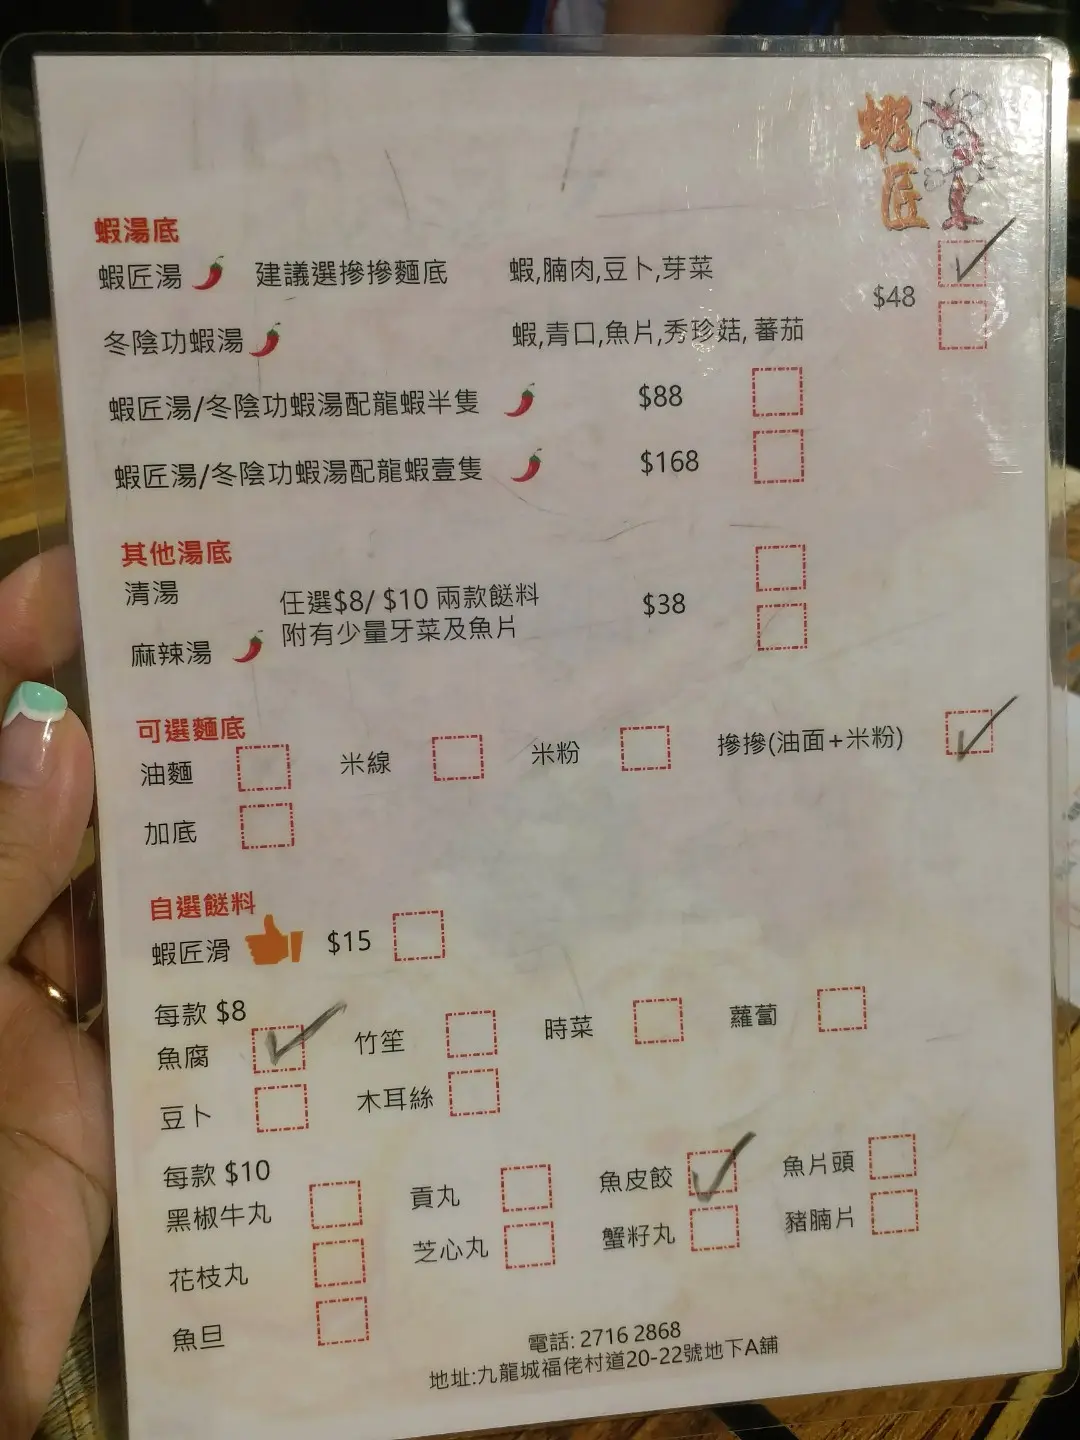 蝦匠
蝦湯底
蝦匠湯 建議選摻摻麵底 蝦,腩肉,豆卜,芽菜
$48
冬陰功蝦湯 蝦,青口,魚片,秀珍菇,蕃茄
蝦匠湯/冬陰功蝦湯配龍蝦半隻 $88
蝦匠湯/冬陰功蝦湯配龍蝦壹隻 $168
其他湯底
清湯 任選$8/ $10 兩款餸料 $38
麻辣湯 附有少量牙菜及魚片
可選麵底
油麵 米線 米粉 摻摻(油面+米粉)
加底
自選餸料
蝦匠滑 $15
每款 $8
魚腐 竹笙 時菜 蘿蔔
豆卜 木耳絲
每款 $10
黑椒牛丸 貢丸 魚皮餃 魚片頭
花枝丸 芝心丸 蟹籽丸 豬腩片
魚旦
電話: 2716 2868
地址:九龍城福佬村道20-22號地下A舖